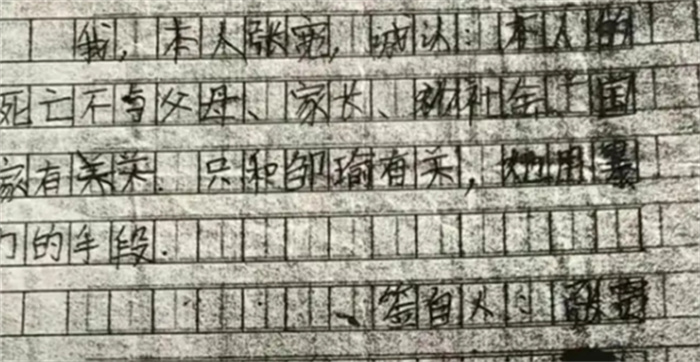 我,本人张宽,诚认:本人的
死亡不与父母、家长、社会、国
家有关关.只和邹瑜有关,她用暴
力的手段.
签自人:张宽